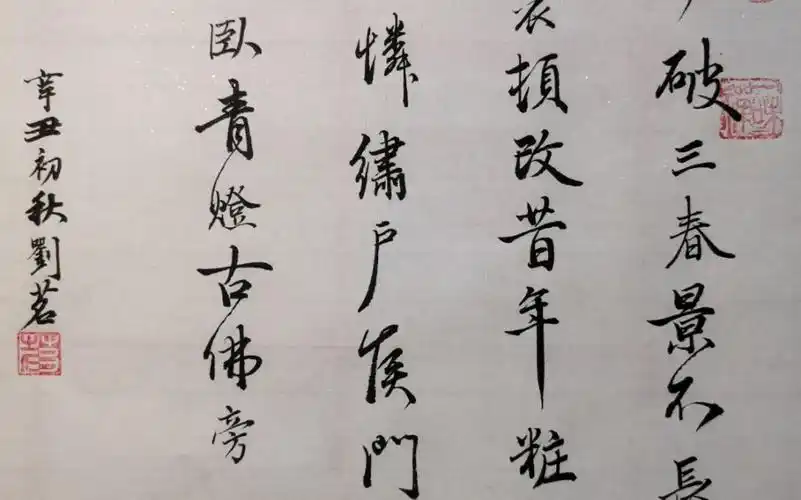 破三春景不長
衣頓改昔年粧
憐繡户侯門
臥青燈古佛旁
辛丑初秋劉茗